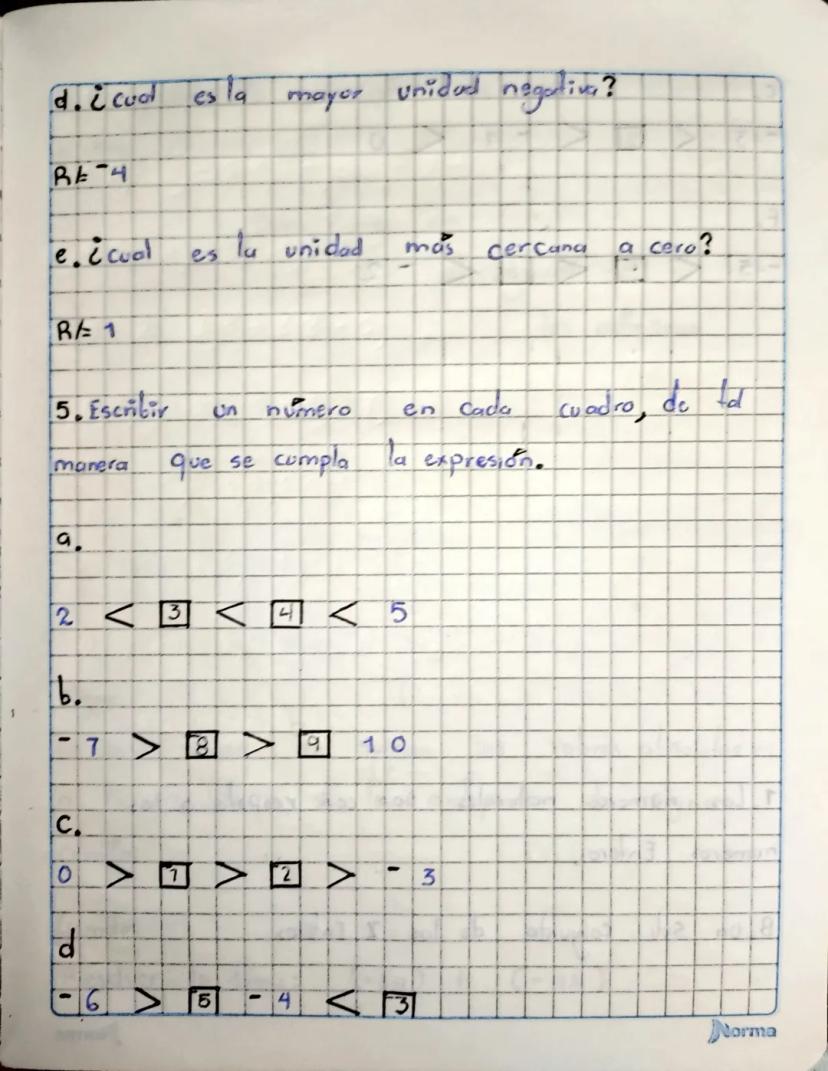 d. ¿cual es la mayor unidad negativa?
R/= -4
e. ¿cual es la unidad más cercana a cero?
R/= 1
5. Escribir un número en cada cuadro, de tal
manera que se cumpla la expresión.
a.
2 < 3 < 4 < 5
b.
- 7 > 8 > 9 10
c.
0 > 1 > 2 > - 3
d
- 6 > 5 - 4 < 3
Norma